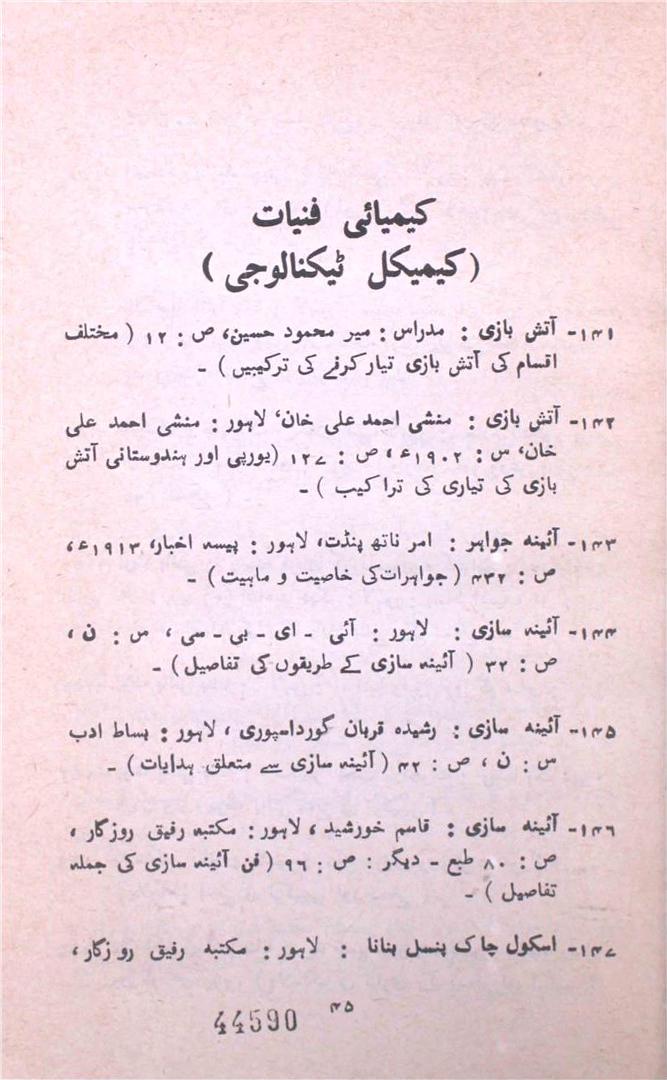 کیمیائی فنیات
(کیمیکل ٹیکنالوجی)
۱۴۱- آتش بازی : مدراس : میر محمود حسین، ص : ۱۲ ( مختلف
اقسام کی آتش بازی تیار کرنے کی ترکیبیں ) -
۱۴۲- آتش بازی : منشی احمد علی خان، لاہور : منشی احمد علی
خان، س : ۱۹۰۲ء، ص : ۱۲۷ (یورپی اور ہندوستانی آتش
بازی کی تیاری کی تراکیب ) -
۱۴۳- آئینہ جواہر : امر ناتھ پنڈت، لاہور : پیسہ اخبار، ۱۹۱۳ء،
ص : ۴۳۲ ( جواہرات کی خاصیت و ماہیت ) -
۱۴۴- آئینہ سازی : لاہور : آئی - ای - بی - سی ، س : ن ،
ص : ۳۲ ( آئینہ سازی کے طریقوں کی تفاصیل ) -
۱۴۵- آئینہ سازی : رشیدہ قربان گورداسپوری ، لاہور : بساط ادب
س : ن ، ص : ۴۲ ( آئینہ سازی سے متعلق ہدایات ) -
۱۴۶- آئینہ سازی : قاسم خورشید ، لاہور : مکتبہ رفیق روزگار ،
ص : ۸۰ طبع - دیگر : ص : ۹۶ ( فن آئینہ سازی کی جملہ
تفاصیل ) -
۱۴۷- اسکول چاک پنسل بنانا : لاہور : مکتبہ رفیق روزگار ،
۴۵
44590